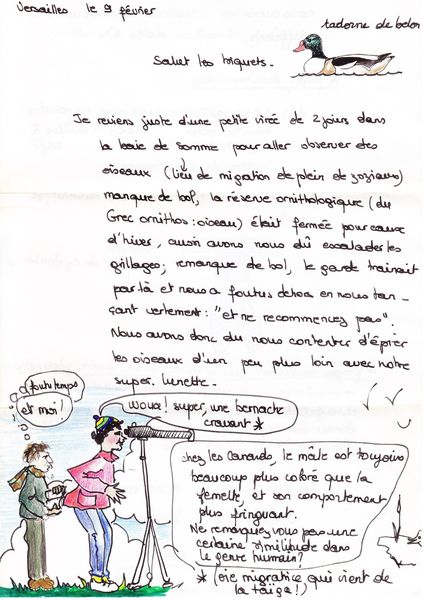 Versailles le 9 février
tadorne de belon
Salut les triquets.
Je reviens juste d'une petite virée de 2 jours dans
la baie de somme pour aller observer des
oiseaux (lieu de migration de plein de zoziaux)
manque de bol, la réserve ornithologique (du
Grec ornithos : oiseau) était fermée pour cause
d'hiver, aussi avons nous dû escalader les
grillages; remanque de bol, le garde trainait
par là et nous a foutus dehors en nous tan-
çant vertement : "et ne recommencez pas".
Nous avons donc du nous contenter d'épier
les oiseaux d'un peu plus loin avec notre
super lunette.
foutu temps
et moi !
Woua! super, une bernache
cravant *
chez les canards, le mâle est toujours
beaucoup plus coloré que la
femelle, et son comportement
plus fringuant.
Ne remarquez vous pas une
certaine similitude dans
le genre humain?
* (oie migratrice qui vient de
la taïga!)